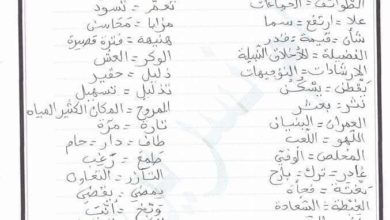 الطوائف = الجماعات
علا = ارتفع = سما
شأن = قيمة = قدر
الفضيلة = الأخلاق النبيلة
الإرشادات = التوجيهات
يقطن = يسكن
نثر = بعثر
العمران = البنيان
اللهو = اللعب
المخلص = الوفي
غادر = ترك = بارح
بغتة = فجأة
الغبطة = السعادة
تعمّ = تسود
مزايا = محاسن
هنيهة = فترة قصيرة
الوكر = العش
ذليل = حقير
تذليل = تسهيل
المروج = المكان الكثير المياه
تارة = مرّة
طاف = دار = حام
طمع = رغب
التآزر = التعاون
يمضي = يقضي
وبّخ = أنّب